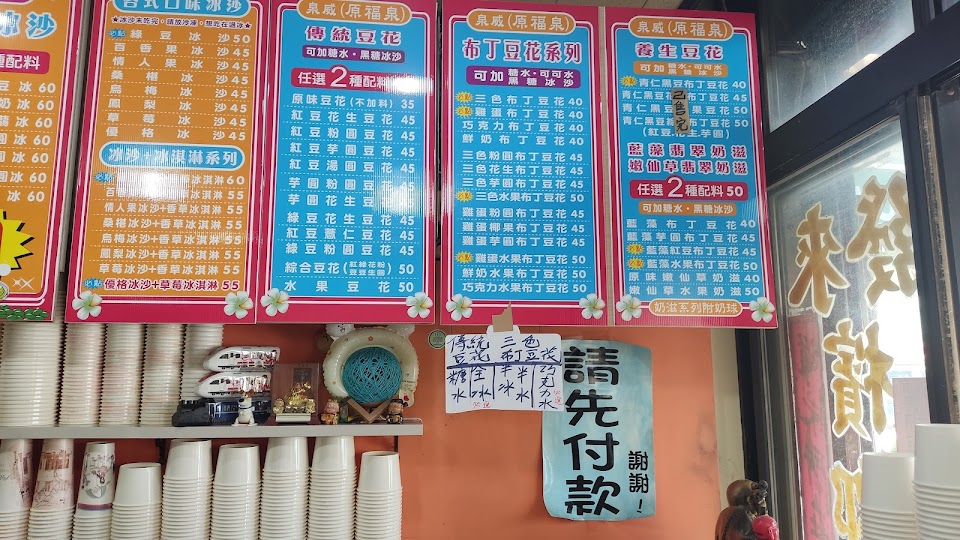 冰沙
配料
冰 60
奶冰 60
冰 60
冰 60
冰 60
冰 60
台式口味冰沙
★冰沙未吃完,請放冷凍,想吃在退冰★
必點 綠豆冰沙 50
百香果冰沙 45
情人果冰沙 45
桑椹冰沙 45
烏梅冰沙 45
鳳梨冰沙 45
草莓冰沙 45
優格冰沙 45
冰沙+冰淇淋系列
必點
冰淇淋 60
百香
香草冰淇淋 55
情人果冰沙+香草冰淇淋 55
桑椹冰沙+香草冰淇淋 55
烏梅冰沙+香草冰淇淋 55
鳳梨冰沙+香草冰淇淋 55
草莓冰沙+香草冰淇淋 55
必點 優格冰沙+草莓冰淇淋 55
泉威(原福泉)
傳統豆花
可加糖水·黑糖冰沙
任選2種配料
原味豆花(不加料) 35
紅豆花生豆花 45
紅豆粉圓豆花 45
紅豆芋圓豆花 45
紅豆湯圓豆花 45
芋圓粉圓豆花 45
芋圓花生豆花 45
綠豆花生豆花 45
紅豆薏仁豆花 45
綠豆粉圓豆花 45
綜合豆花 50
水果豆花 50
泉威(原福泉)
布丁豆花系列
可加 糖水·可可水
黑糖冰沙
必點 三色布丁豆花 40
必點 雞蛋布丁豆花 40
巧克力布丁豆花 40
鮮奶布丁豆花 40
三色粉圓布丁豆花 45
三色花生布丁豆花 45
三色芋圓布丁豆花 45
必點 三色水果布丁豆花 50
雞蛋粉圓布丁豆花 45
雞蛋椰果布丁豆花 45
雞蛋芋圓布丁豆花 45
必點 雞蛋水果布丁豆花 50
鮮奶水果布丁豆花 50
巧克力水果布丁豆花 50
泉威(原福泉)
養生豆花
可加 糖水·可可水
黑糖冰沙
必點 青仁黑豆豆花 40
青仁黑豆布丁豆花 45
青仁黑豆
果豆花 50
青仁黑豆
布丁豆花 50
(紅豆
生芋圓)
已售完
藍藻翡翠奶滋
嫩仙草翡翠奶滋
任選2種配料 50
可加糖水·黑糖冰沙
藍藻布丁豆花 40
藍藻芋圓布丁豆花 45
必點 藍藻紅豆布丁豆花 45
必點 藍藻水果布丁豆花 50
原味嫩仙草奶滋 40
嫩仙草水果奶滋 50
奶滋系列附奶球
傳統
豆花
三色
布丁豆花
糖水
全冰
半冰
半水
巧克力水
請先付款
謝謝!
發來檳